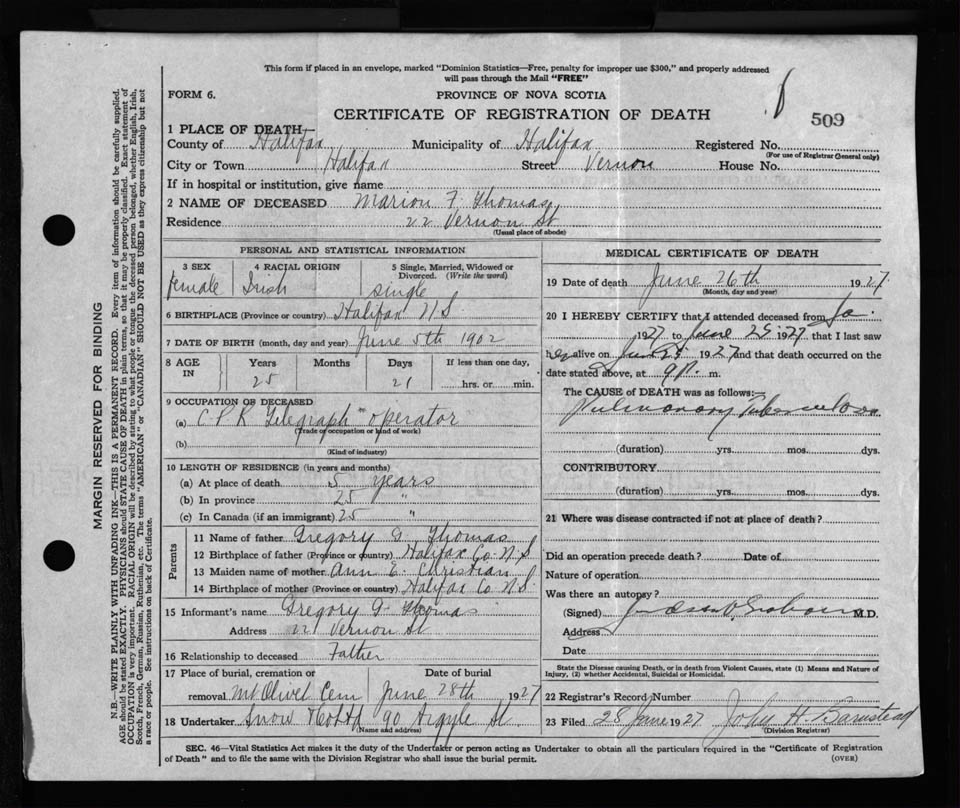 This form if placed in an envelope, marked "Dominion Statistics—Free, penalty for improper use $300," and properly addressed
will pass through the Mail "FREE"
FORM 6.
PROVINCE OF NOVA SCOTIA
CERTIFICATE OF REGISTRATION OF DEATH
509
1 PLACE OF DEATH—
County of Halifax Municipality of Halifax Registered No.
(For use of Registrar General only)
City or Town Halifax Street Vernon House No.
If in hospital or institution, give name
2 NAME OF DECEASED Marion F. Thomas
Residence 22 Vernon St
(Usual place of abode)
PERSONAL AND STATISTICAL INFORMATION
3 SEX 4 RACIAL ORIGIN 5 Single, Married, Widowed or
Divorced. (Write the word)
Female Irish Single
6 BIRTHPLACE (Province or country) Halifax N S
7 DATE OF BIRTH (month, day and year) June 5th 1902
8 AGE IN Years Months Days If less than one day,
25 21 hrs. or min.
9 OCCUPATION OF DECEASED
(a) C. P. R Telegraph operator
(Trade or occupation or kind of work)
(b)
(Kind of industry)
10 LENGTH OF RESIDENCE (in years and months)
(a) At place of death 5 years
(b) In province 25 "
(c) In Canada (if an immigrant) 25 "
Parents
11 Name of father Gregory G. Thomas
12 Birthplace of father (Province or country) Halifax Co N. S
13 Maiden name of mother Ann E. Christian
14 Birthplace of mother (Province or country) Halifax Co N. S
15 Informant's name Gregory G Thomas
Address 22 Vernon St
16 Relationship to deceased Father
17 Place of burial, cremation or Date of burial
removal Mt Olivet Cem June 28th 1927
18 Undertaker Snow & Co Ltd 90 Argyle St
(Name and address)
MEDICAL CERTIFICATE OF DEATH
19 Date of death June 26th 1927
(Month, day and year)
20 I HEREBY CERTIFY that I attended deceased from Ja.
1927 to June 25 1927 that I last saw
her alive on June 25 1927 and that death occurred on the
date stated above, at 9 P. m.
The CAUSE of DEATH was as follows:—
Pulmonary Tuberculosis
(duration) yrs. mos. dys.
CONTRIBUTORY
(duration) yrs. mos. dys.
21 Where was disease contracted if not at place of death?
Did an operation precede death? Date of
Nature of operation
Was there an autopsy?
(Signed) M.D.
Address
Date
State the Disease causing Death, or in death from Violent Causes, state (1) Means and Nature of
Injury, (2) whether Accidental, Suicidal or Homicidal.
22 Registrar's Record Number
23 Filed 28 June 1927 John H. Barnstead
(Division Registrar)
SEC. 46—Vital Statistics Act makes it the duty of the Undertaker or person acting as Undertaker to obtain all the particulars required in the "Certificate of Registration
of Death" and to file the same with the Division Registrar who shall issue the burial permit.
(OVER)
MARGIN RESERVED FOR BINDING
N.B.—WRITE PLAINLY WITH UNFADING INK—THIS IS A PERMANENT RECORD. Every item of information should be carefully supplied.
AGE should be stated EXACTLY. PHYSICIANS should STATE CAUSE OF DEATH in plain terms, so that it may be properly classified. Exact statement of
OCCUPATION is very important. RACIAL ORIGIN will be described by stating to what people or tongue the deceased person belonged, whether English, Irish,
Scotch, French, German, Russian, Ruthenian, etc. The terms "AMERICAN" or "CANADIAN" SHOULD NOT BE USED as they express citizenship but not
a race or people. See instructions on back of Certificate.